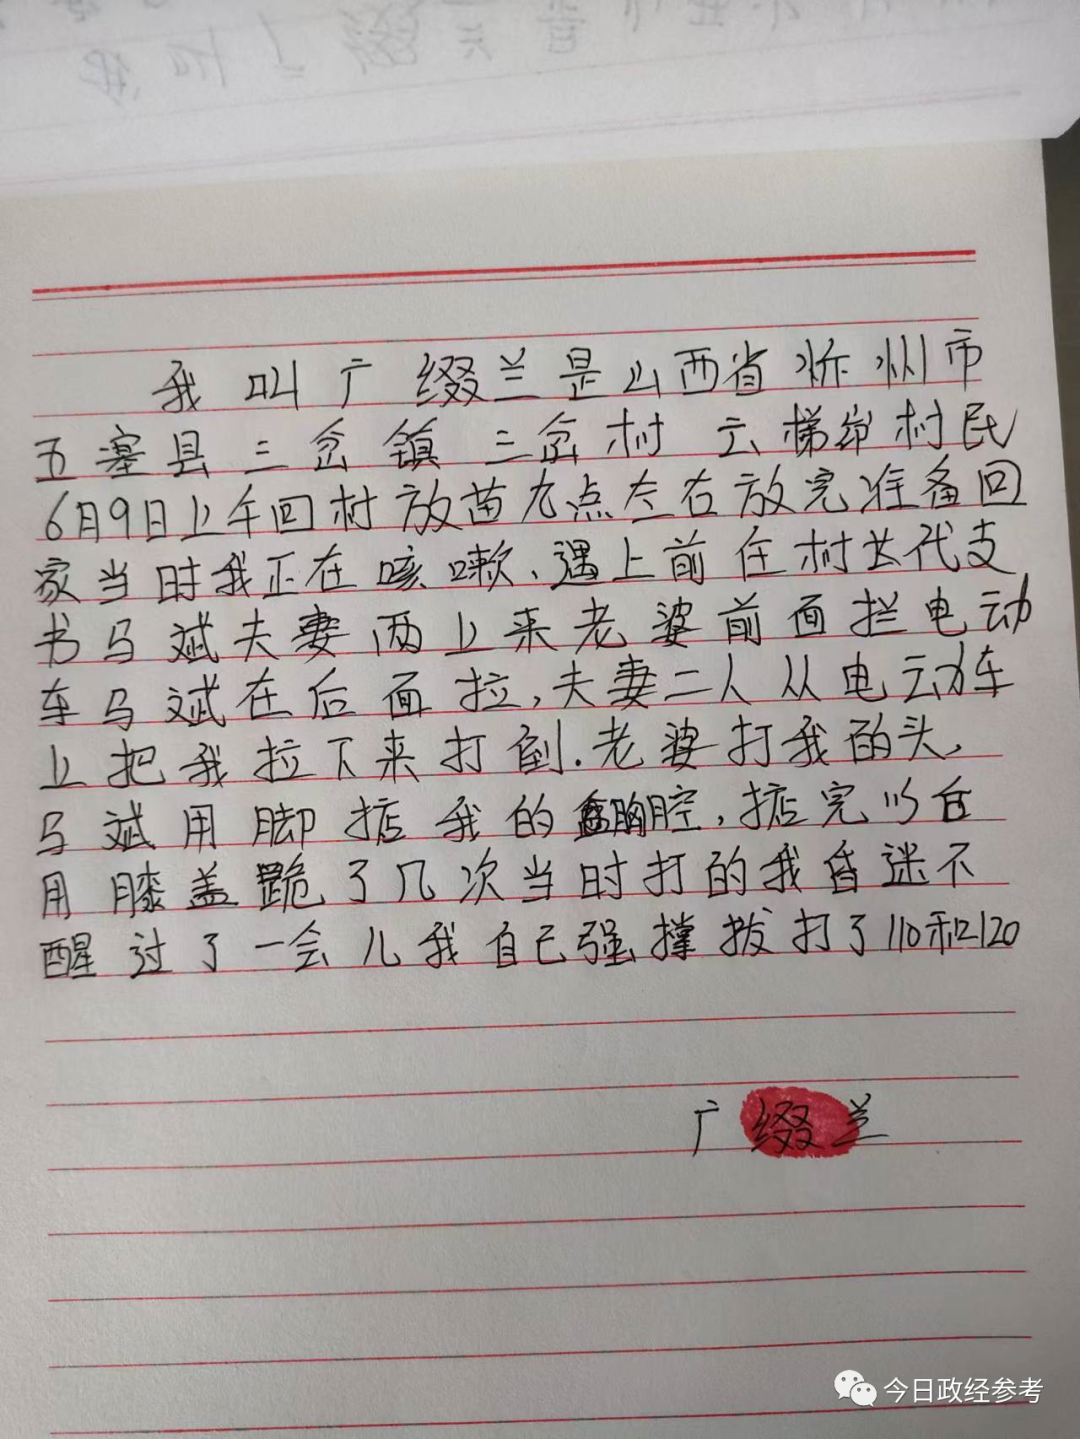 我叫广缀兰是山西省忻州市
五寨县三岔镇三岔村云梯岸村民
6月9日上午回村放苗九点左右放完准备回
家当时我正在咳嗽、遇上前任村长代支
书马斌夫妻两上来老婆前面拦电动
车马斌在后面拉,夫妻二人从电动车
上把我拉下来打倒.老婆打我的头,
马斌用脚掂我的胸腔,掂完以后
用膝盖跪了几次当时打的我昏迷不
醒过了一会儿我自己强撑拔打了110和120
广缀兰
今日政经参考